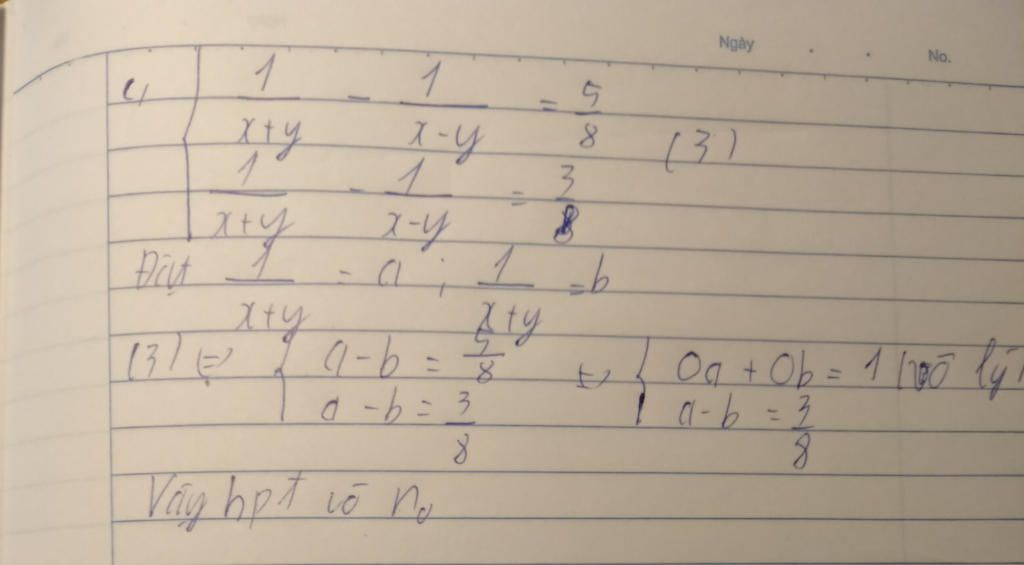 Ngày . . No.
c, { 1/(x+y) - 1/(x-y) = 5/8 (3)
1/(x+y) - 1/(x-y) = 3/8
Đặt 1/(x+y) = a ; 1/(x+y) = b
(3) ⇔ { a - b = 5/8 ⇔ { 0a + 0b = 1 (vô lý)
a - b = 3/8 a - b = 3/8
Vậy hpt vô n₀